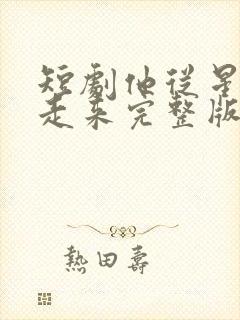 短劇他從星
走來完整版
熱田壽